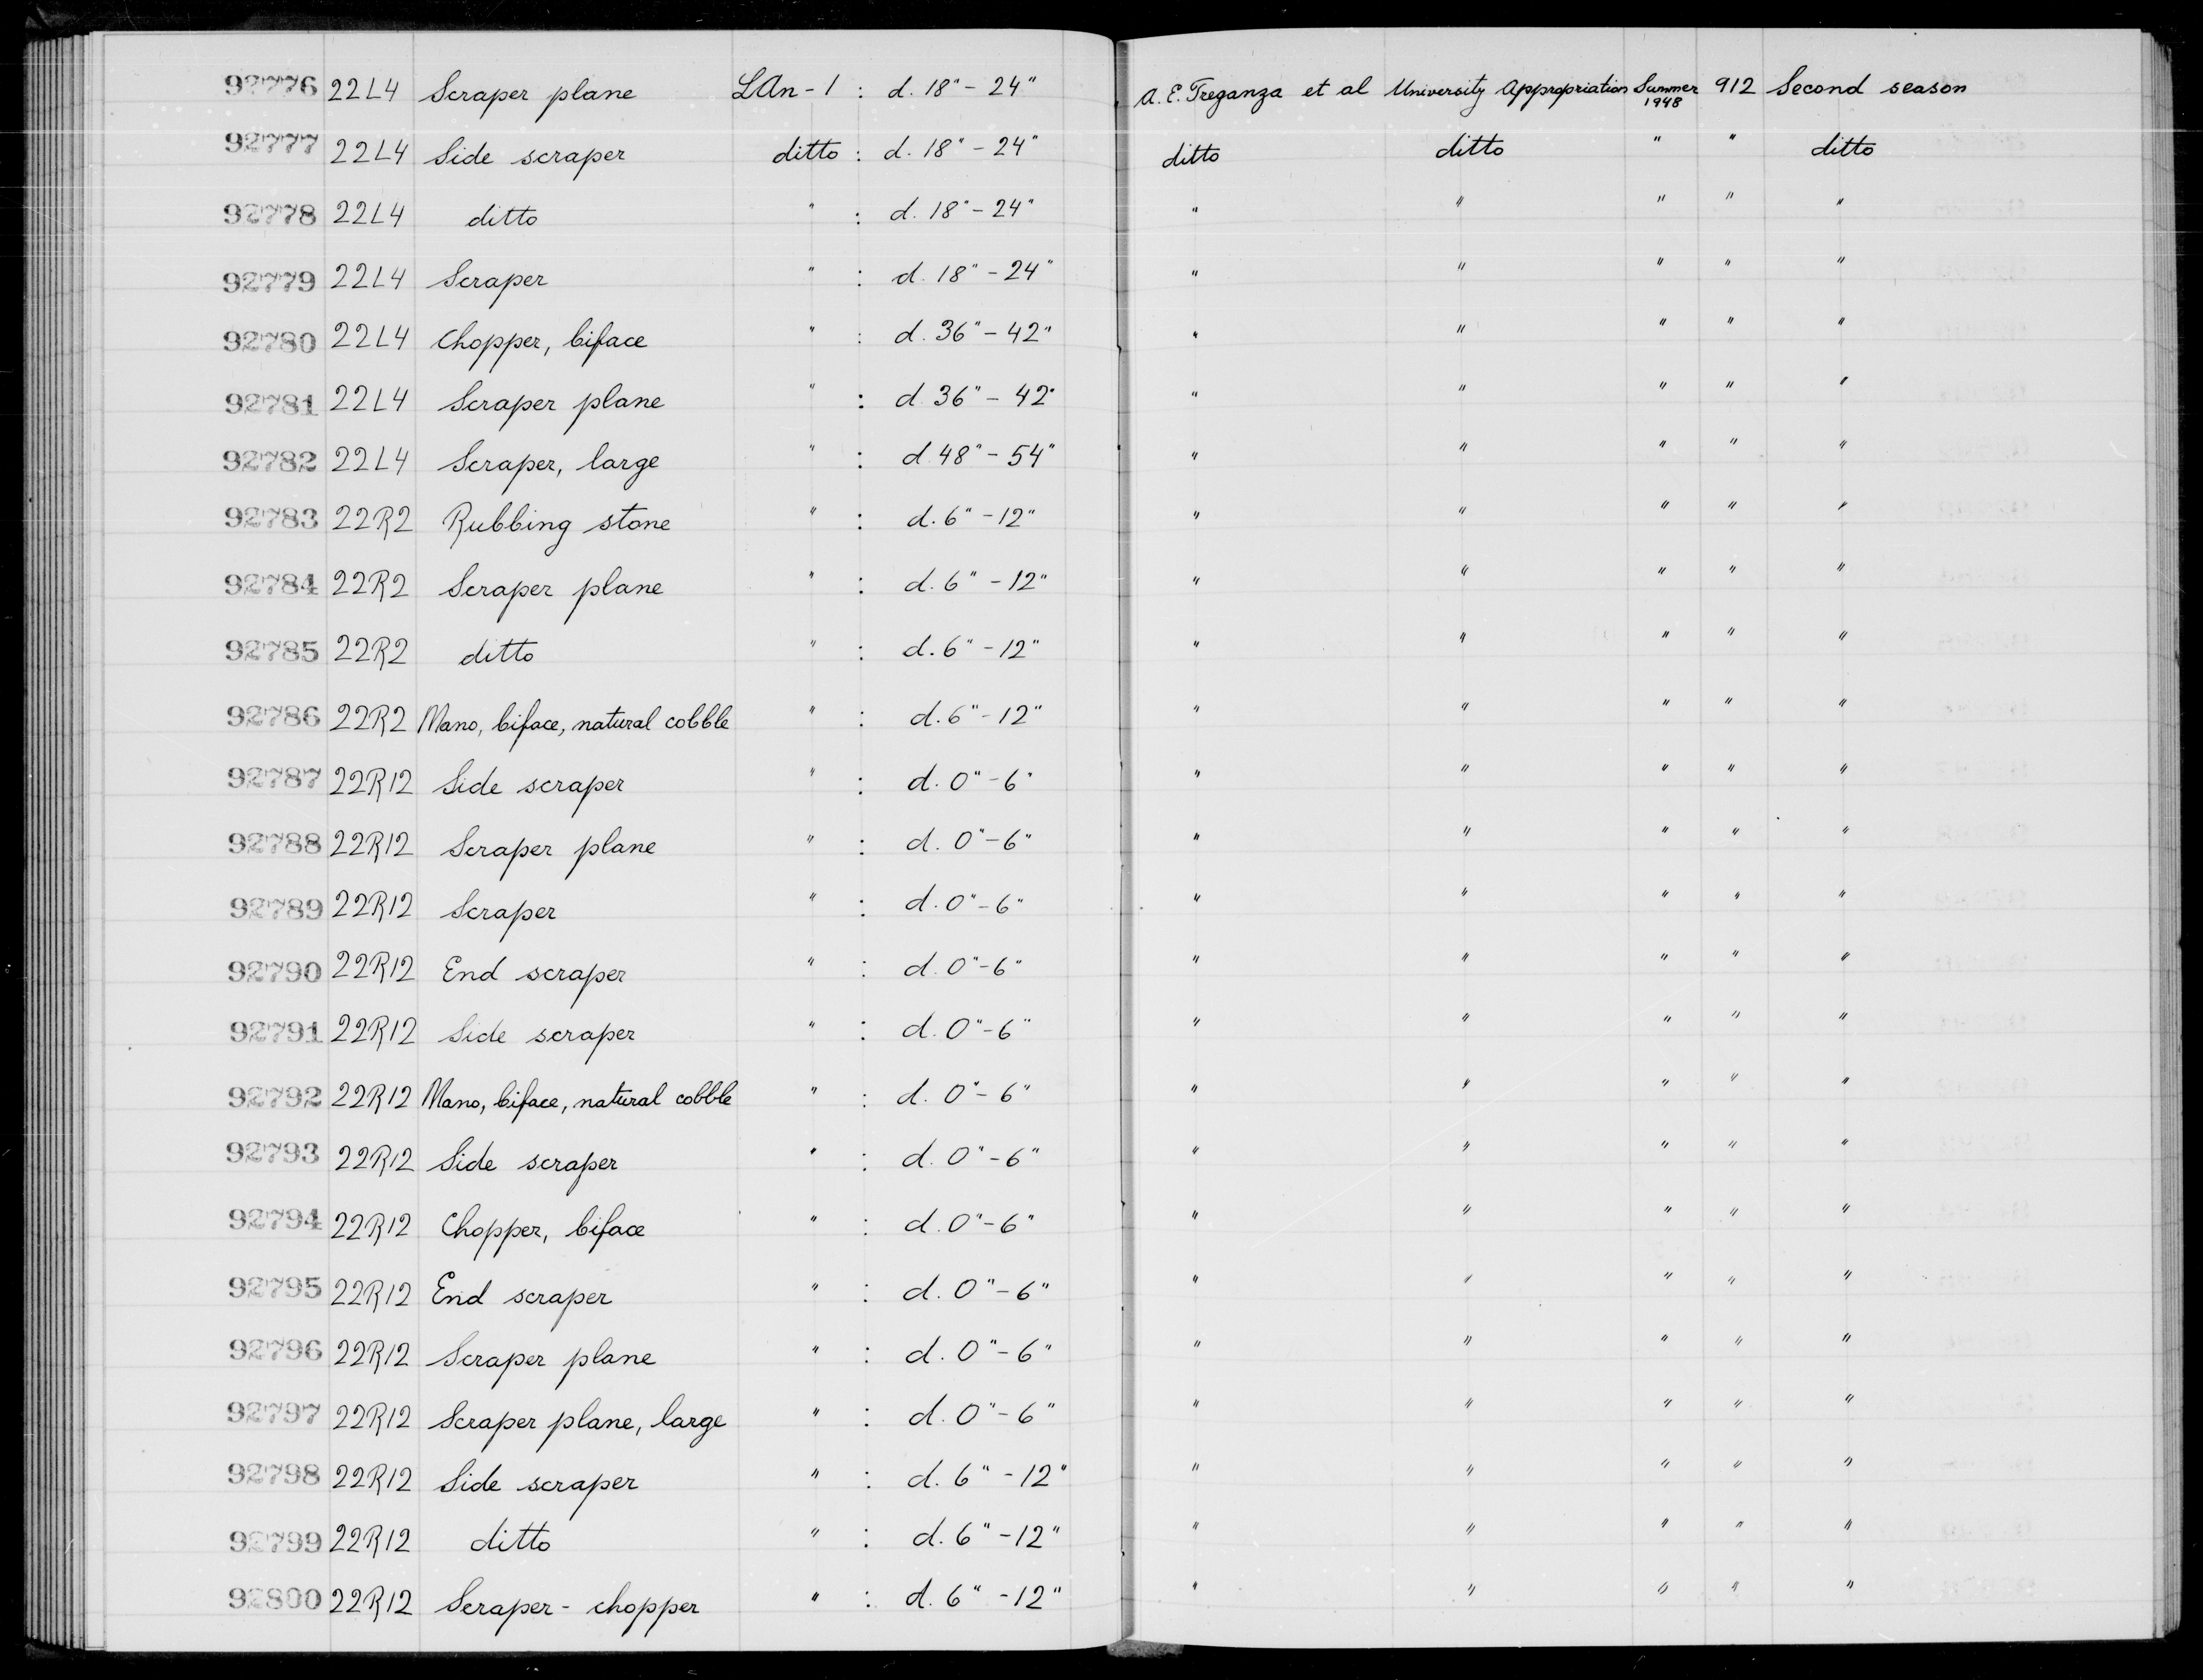 92776 22L4 Scraper plane LAn-1 : d. 18" - 24" A. E. Treganza et al University Appropriation Summer 1948 912 Second season
92777 22L4 Side scraper ditto : d. 18" - 24" ditto ditto " " ditto
92778 22L4 ditto " : d. 18" - 24" " " " " "
92779 22L4 Scraper " : d. 18" - 24" " " " " "
92780 22L4 Chopper, biface " : d. 36" - 42" " " " " "
92781 22L4 Scraper plane " : d. 36" - 42" " " " " "
92782 22L4 Scraper, large " : d. 48" - 54" " " " " "
92783 22R2 Rubbing stone " : d. 6" - 12" " " " " "
92784 22R2 Scraper plane " : d. 6" - 12" " " " " "
92785 22R2 ditto " : d. 6" - 12" " " " " "
92786 22R2 Mano, biface, natural cobble " : d. 6" - 12" " " " " "
92787 22R12 Side scraper " : d. 0" - 6" " " " " "
92788 22R12 Scraper plane " : d. 0" - 6" " " " " "
92789 22R12 Scraper " : d. 0" - 6" " " " " "
92790 22R12 End scraper " : d. 0" - 6" " " " " "
92791 22R12 Side scraper " : d. 0" - 6" " " " " "
92792 22R12 Mano, biface, natural cobble " : d. 0" - 6" " " " " "
92793 22R12 Side scraper " : d. 0" - 6" " " " " "
92794 22R12 Chopper, biface " : d. 0" - 6" " " " " "
92795 22R12 End scraper " : d. 0" - 6" " " " " "
92796 22R12 Scraper plane " : d. 0" - 6" " " " " "
92797 22R12 Scraper plane, large " : d. 0" - 6" " " " " "
92798 22R12 Side scraper " : d. 6" - 12" " " " " "
92799 22R12 ditto " : d. 6" - 12" " " " " "
92800 22R12 Scraper - chopper " : d. 6" - 12" " " " " "